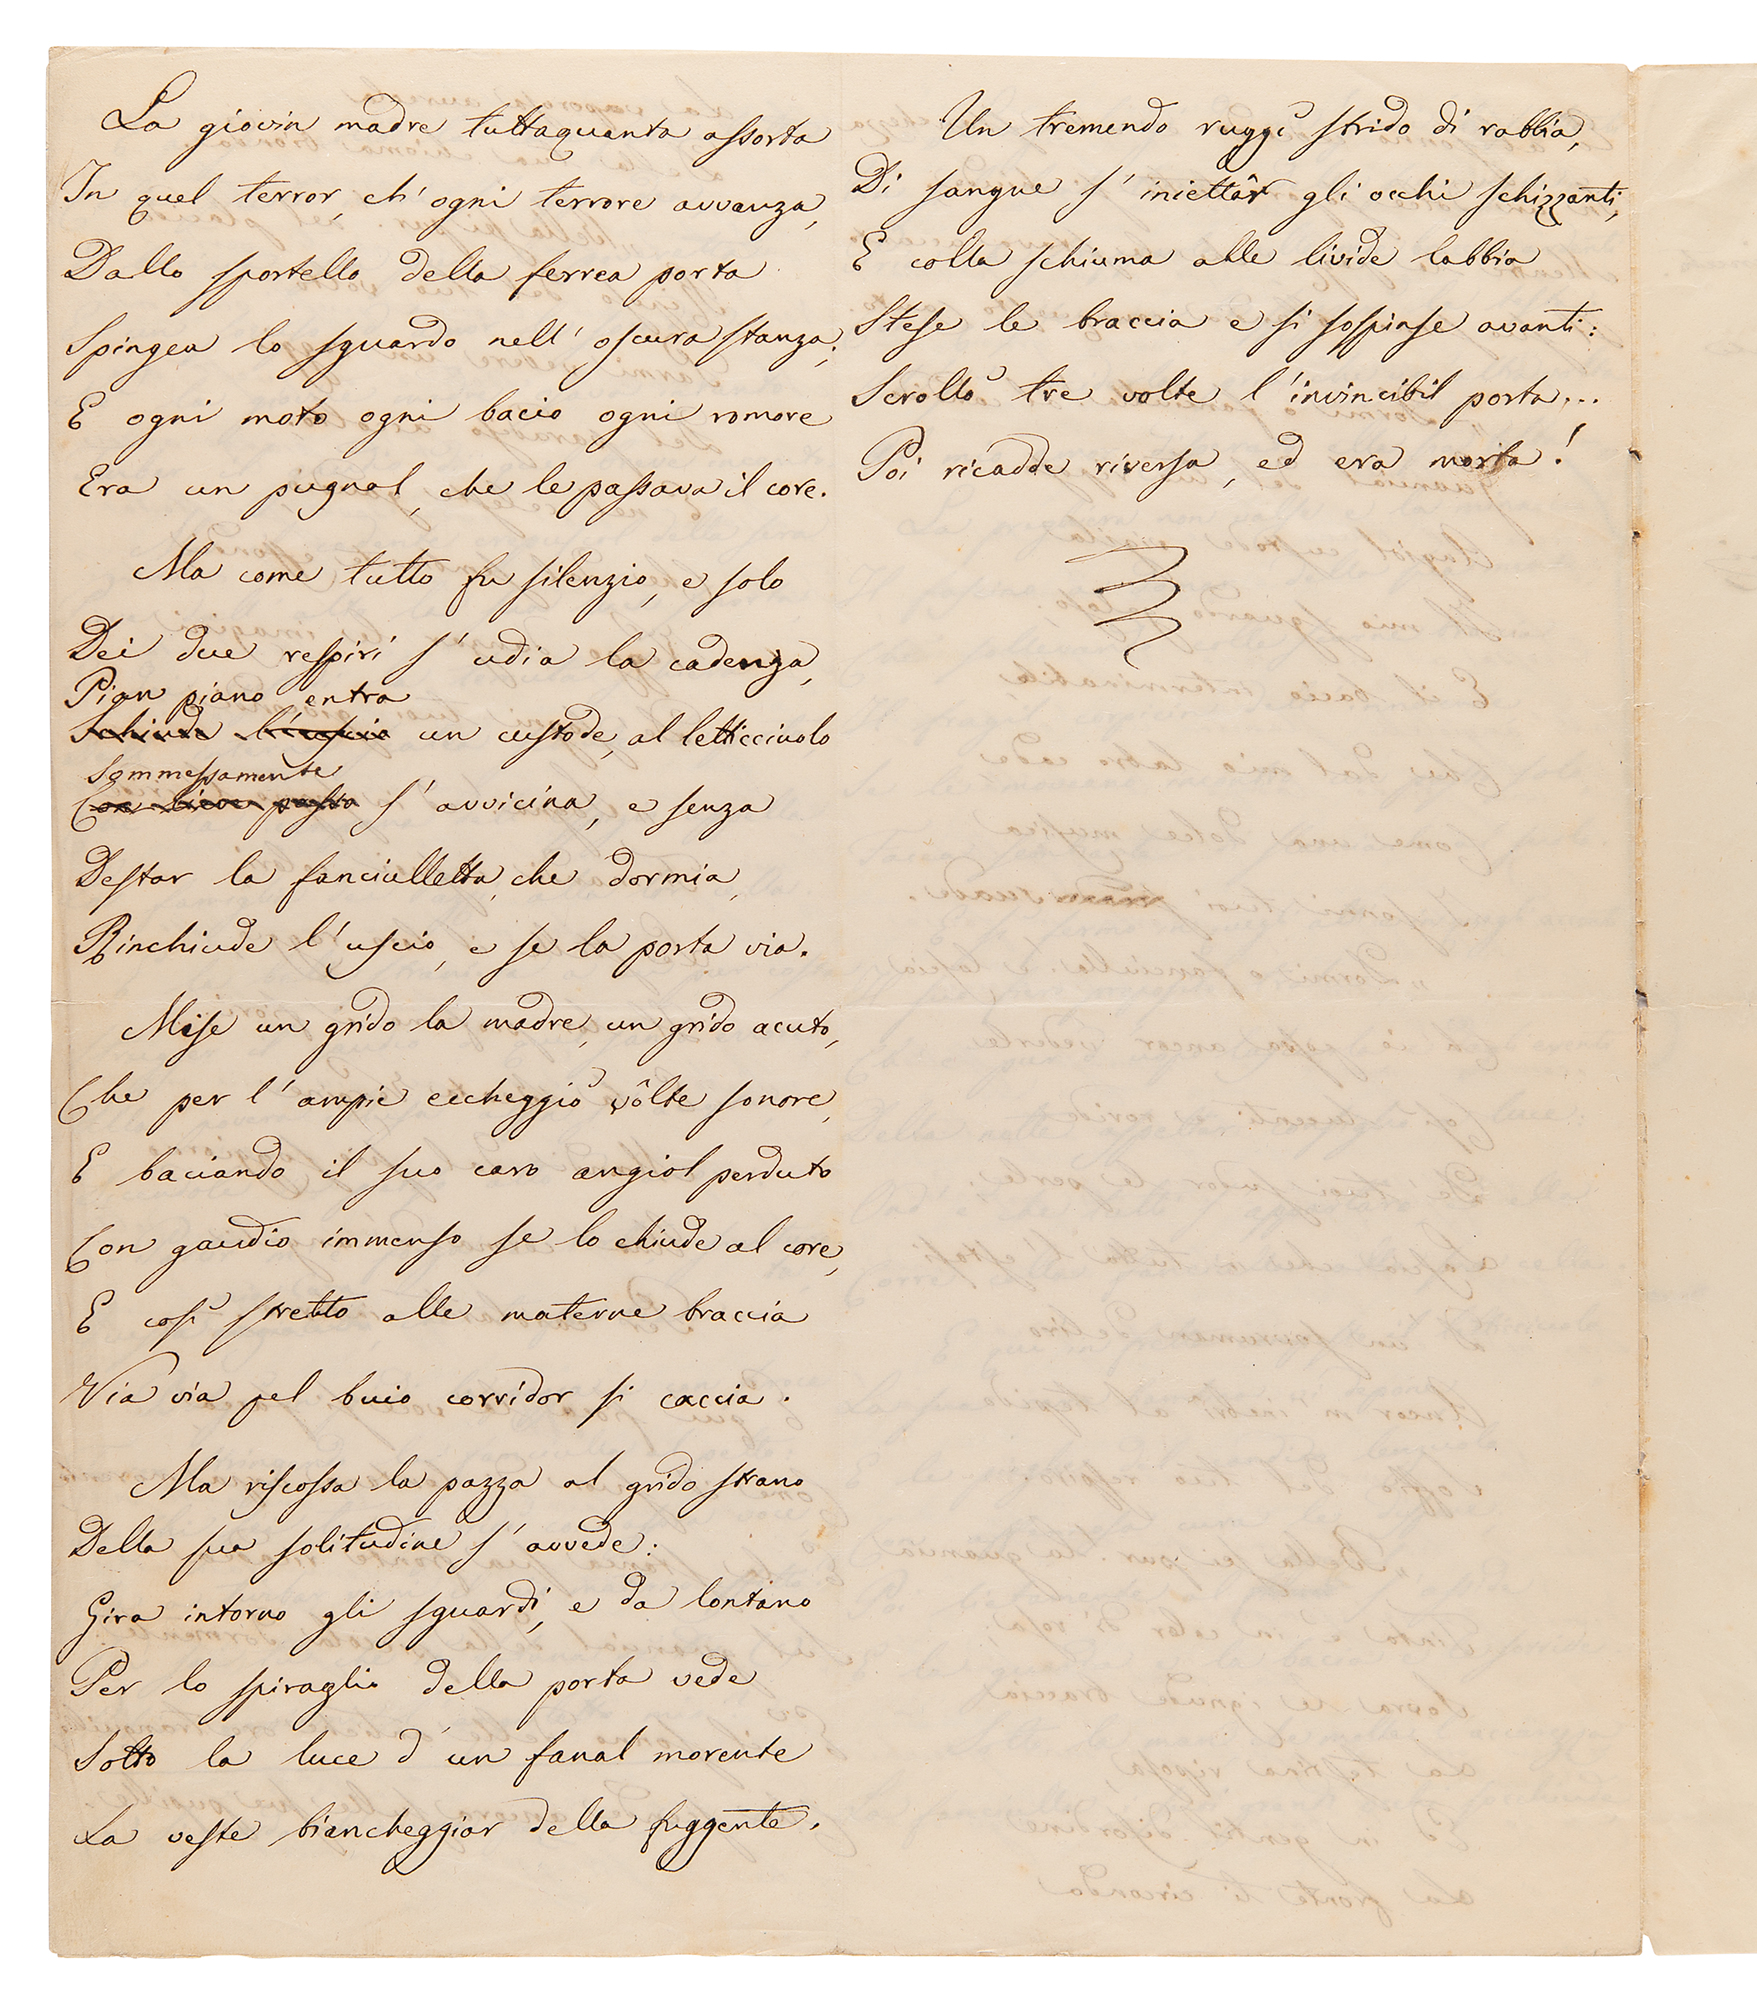 La giovin madre tuttaquanta assorta
In quel terror, ch'ogni terrore avvanza,
Dallo sportello della ferrea porta
Spingea lo sguardo nell'oscura stanza;
E ogni moto ogni bacio ogni romore
Era un pugnal, che le passava il core.
Ma come tutto fu silenzio, e solo
Dei due respiri s'udia la cadenza,
Pian piano entra
Schiude l'uscio un custode, al letticciuolo
Sommessamente
Con lieve passo s'avvicina, e senza
Destar la fanciulletta, che dormia,
Rinchiude l'uscio, e se la porta via.
Mise un grido la madre, un grido acuto,
Che per l'ampie eccheggiò vôlte sonore,
E baciando il suo caro angiol perduto
Con gaudio immenso se lo chiude al core,
E così stretto alle materne braccia
Via via pel buio corridor si caccia.
Ma riscossa la pazza al grido strano
Della sua solitudine s'avvede:
Gira intorno gli sguardi, e da lontano
Per lo spiraglio della porta vede
Sotto la luce d'un fanal morente
La veste biancheggiar della fuggente.
Un tremendo ruggì strido di rabbia,
Di sangue s'iniettâr gli occhi schizzanti,
E colla schiuma alle livide labbia
Stese le braccia e si sospinse avanti:
Scrollò tre volte l'invincibil porta...
Poi ricadde riversa, ed era morta!